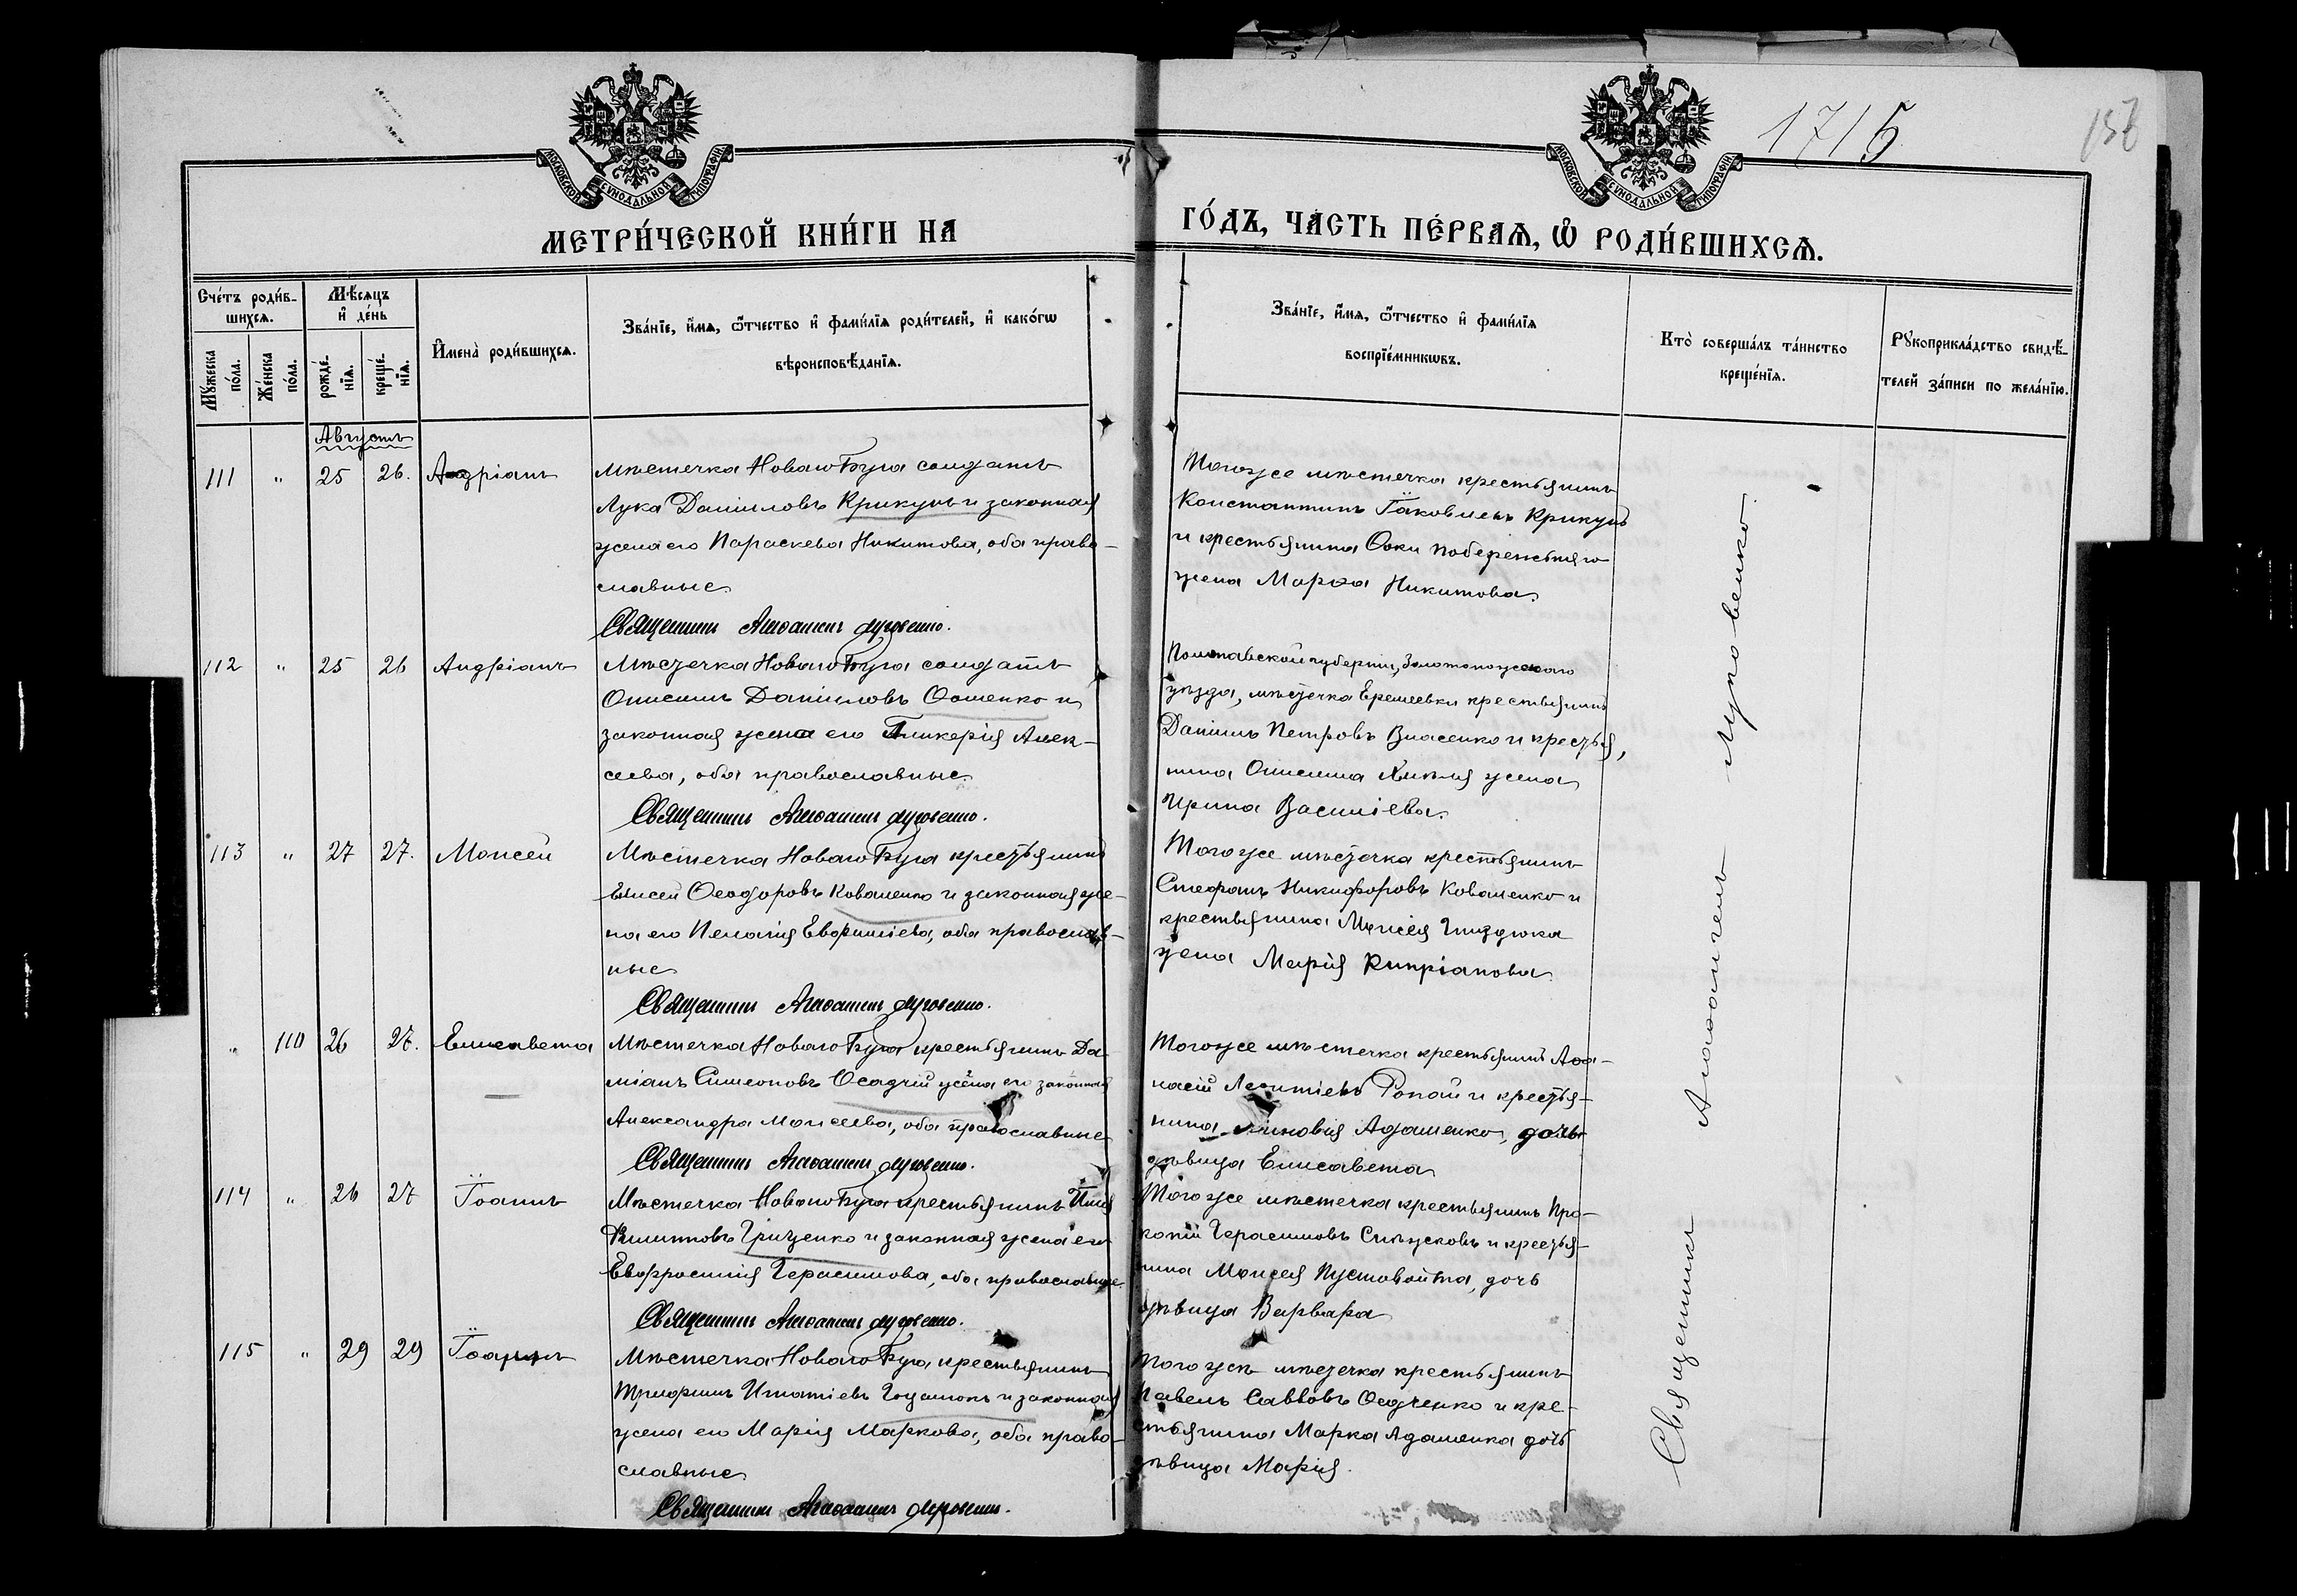 1715
156
МОСКОВСКОЙ СѴНОДАЛЬНОЙ ТИПОГРАФІИ
МОСКОВСКОЙ СѴНОДАЛЬНОЙ ТИПОГРАФІИ
МЕТРИ́ЧЕСКОЙ КНИ́ГИ НА
ГО́ДЪ, ЧА́СТЬ ПЕ́РВАѦ, Ѽ РОДИ́ВШИХСѦ.
Сче́тъ роди́в-
шихсѧ.
Мѣ́сѧцъ
и҆ де́нь
Мꙋ́жеска
по́ла.
Же́нска
по́ла.
рожде́-
нїѧ.
креще́-
нїѧ.
И҆мена̀ роди́вшихсѧ.
Зва́нїе, и҆́мѧ, ѻ҆́тчество и҆ фами́лїѧ роди́телей, и҆ како́гѡ
вѣроисповѣ́данїѧ.
Зва́нїе, и҆́мѧ, ѻ҆́тчество и҆ фами́лїѧ
воспрїе́мникѡвъ.
Кто̀ соверша́лъ та́инство
креще́нїѧ.
Рꙋкоприкла́дство свидѣ́-
телей за́писи по жела́нїю.
Августъ
111 " 25 26. Андріанъ
Мѣстечка Новаго Буга солдатъ
Лука Даніиловъ Крикунъ и законная
жена его Параскева Никитова, оба право-
славные
Священникъ Агаѳангелъ Луговенко.
Тогоже мѣстечка крестьянинъ
Константинъ Іаковлевъ Крикунъ
и крестьянина
жена Марѳа Никитова.
112 " 25 26 Андріанъ
Мѣстечка Новаго Буга солдатъ
Онисимъ Даніиловъ и
законная жена его Гликерія Алек-
сеева, оба православные.
Священникъ Агаѳангелъ Луговенко.
Полтавской губерніи, Золотоношскаго
уѣзда, мѣстечка Еремеевки крестьянинъ
Даніилъ Петровъ Власенко и крестья-
нина Онисима жена
Ирина Василіева.
113 " 27 27. Моисей
Мѣстечка Новаго Буга крестьянинъ
Елисей Ѳеодоровъ Коваленко и законная же-
на его Пелагія Евфиміева, оба православ-
ные
Священникъ Агаѳангелъ Луговенко.
Тогоже мѣстечка крестьянинъ
Стефанъ Никифоровъ Коваленко и
крестьянина Моисея
жена Марія Кипріанова
" 110 26 27. Елисавета
Мѣстечка Новаго Буга крестьянинъ Да-
міанъ Симеоновъ Осадчій жена его законная
Александра Моисеева, оба православные
Священникъ Агаѳангелъ Луговенко.
Тогоже мѣстечка крестьянинъ Аѳа-
насій Леонтіевъ и крестья-
нина Адаменко, дочь
дѣвица Елисавета
114 " 26 27 Іоаннъ
Мѣстечка Новаго Буга крестьянинъ Илія
Филипповъ Гриценко и законная жена его
Евфросинія Герасимова, оба православные
Священникъ Агаѳангелъ Луговенко.
Тогоже мѣстечка крестьянинъ Про-
копій Герасимовъ и крестья-
нина Моисея Пустовойта, дочь
дѣвица Варвара
115 " 29 29 Іоаннъ
Мѣстечка Новаго Буга крестьянинъ
Трифонъ Игнатіевъ и законная
жена его Марія Маркова, оба право-
славные
Священникъ Агаѳангелъ Луговенко.
Тогоже мѣстечка крестьянинъ
Павелъ Савовъ и кре-
стьянина Марка Адаменка дочь
дѣвица Марія.
Священникъ Агаѳангелъ Луговенко.